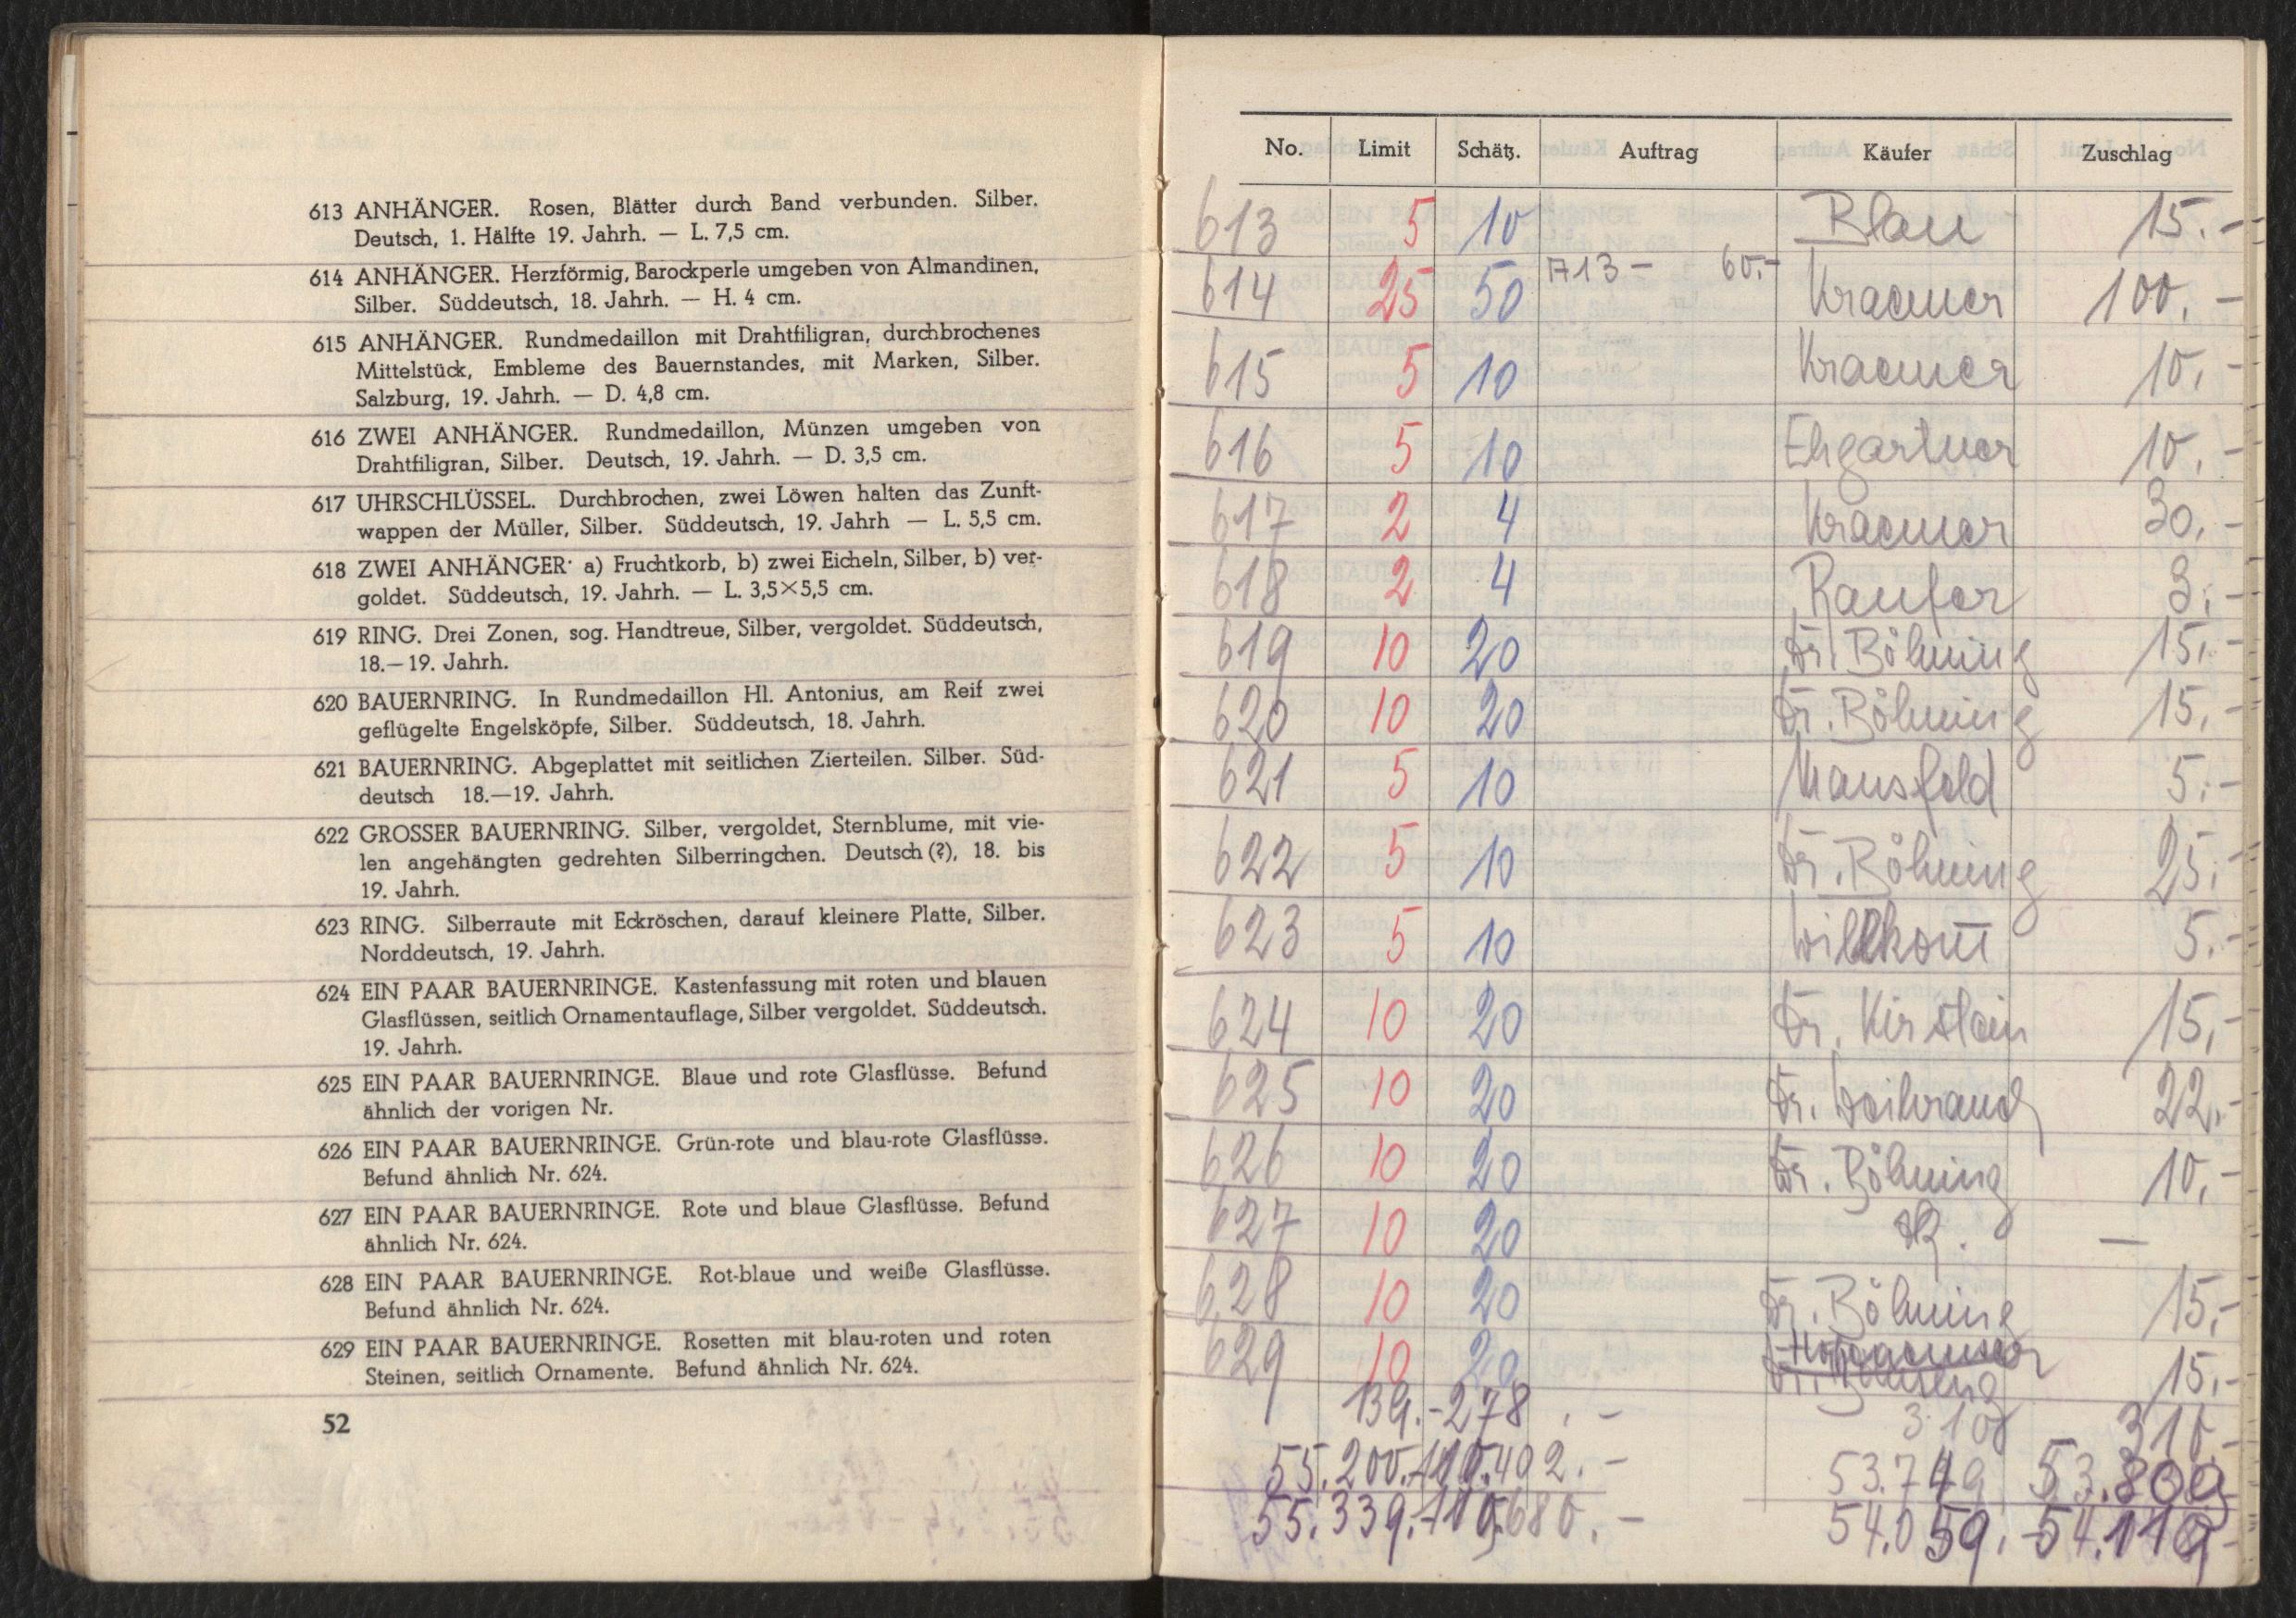 613 ANHÄNGER. Rosen, Blätter durch Band verbunden. Silber.
Deutsch, 1. Hälfte 19. Jahrh. — L. 7,5 cm.
614 ANHÄNGER. Herzförmig, Barockperle umgeben von Almandinen,
Silber. Süddeutsch, 18. Jahrh. — H. 4 cm.
615 ANHÄNGER. Rundmedaillon mit Drahtfiligran, durchbrochenes
Mittelstück, Embleme des Bauernstandes, mit Marken, Silber.
Salzburg, 19. Jahrh. — D. 4,8 cm.
616 ZWEI ANHÄNGER. Rundmedaillon, Münzen umgeben von
Drahtfiligran, Silber. Deutsch, 19. Jahrh. — D. 3,5 cm.
617 UHRSCHLÜSSEL. Durchbrochen, zwei Löwen halten das Zunft-
wappen der Müller, Silber. Süddeutsch, 19. Jahrh — L. 5,5 cm.
618 ZWEI ANHÄNGER· a) Fruchtkorb, b) zwei Eicheln, Silber, b) ver-
goldet. Süddeutsch, 19. Jahrh. — L. 3,5×5,5 cm.
619 RING. Drei Zonen, sog. Handtreue, Silber, vergoldet. Süddeutsch,
18.—19. Jahrh.
620 BAUERNRING. In Rundmedaillon Hl. Antonius, am Reif zwei
geflügelte Engelsköpfe, Silber. Süddeutsch, 18. Jahrh.
621 BAUERNRING. Abgeplattet mit seitlichen Zierteilen. Silber. Süd-
deutsch 18.—19. Jahrh.
622 GROSSER BAUERNRING. Silber, vergoldet, Sternblume, mit vie-
len angehängten gedrehten Silberringchen. Deutsch (?), 18. bis
19. Jahrh.
623 RING. Silberraute mit Eckröschen, darauf kleinere Platte, Silber.
Norddeutsch, 19. Jahrh.
624 EIN PAAR BAUERNRINGE. Kastenfassung mit roten und blauen
Glasflüssen, seitlich Ornamentauflage, Silber vergoldet. Süddeutsch.
19. Jahrh.
625 EIN PAAR BAUERNRINGE. Blaue und rote Glasflüsse. Befund
ähnlich der vorigen Nr.
626 EIN PAAR BAUERNRINGE. Grün-rote und blau-rote Glasflüsse.
Befund ähnlich Nr. 624.
627 EIN PAAR BAUERNRINGE. Rote und blaue Glasflüsse. Befund
ähnlich Nr. 624.
628 EIN PAAR BAUERNRINGE. Rot-blaue und weiße Glasflüsse.
Befund ähnlich Nr. 624.
629 EIN PAAR BAUERNRINGE. Rosetten mit blau-roten und roten
Steinen, seitlich Ornamente. Befund ähnlich Nr. 624.
52
No. Limit Schätz. Auftrag Käufer Zuschlag
613 5 10 Blau 15.-
614 25 50 713- 60.- Kraemer 100.-
615 5 10 Kraemer 10.-
616 5 10 Ehgartner 10.-
617 2 4 Kraemer 30.-
618 2 4 Raufer 3.-
619 10 20 Dr. Böhming 15.-
620 10 20 Dr. Böhming 15.-
621 5 10 Mansfeld 5.-
622 5 10 Dr. Böhming 25.-
623 5 10 Willkom̄ 5.-
624 10 20 Dr. Kirstein 15.-
625 10 20 Dr. 22.-
626 10 20 Dr. Böhming 10.-
627 10 20 —
628 10 20 Dr. Böhming 15.-
629 10 20 15.-
139.- 278.- 310 310.-
55.200.- 110.402.- 53.749 53.809
55.339.- 110.680.- 54.059.- 54.119